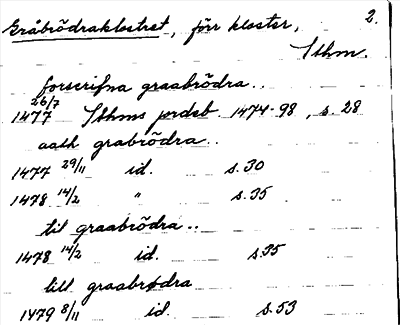 Gråbrödraklostret, förr kloster, 2.
Sthm.
forscrifna graabrödra..
1477 26/7 Sthms jordeb. 1474-98, s. 28
aath grabrödra..
1477 29/11 id. s. 30
1478 14/2 " s. 35
til graabrödra..
1478 14/2 id. s. 35
till graabrødra
1479 8/11 id. s. 53